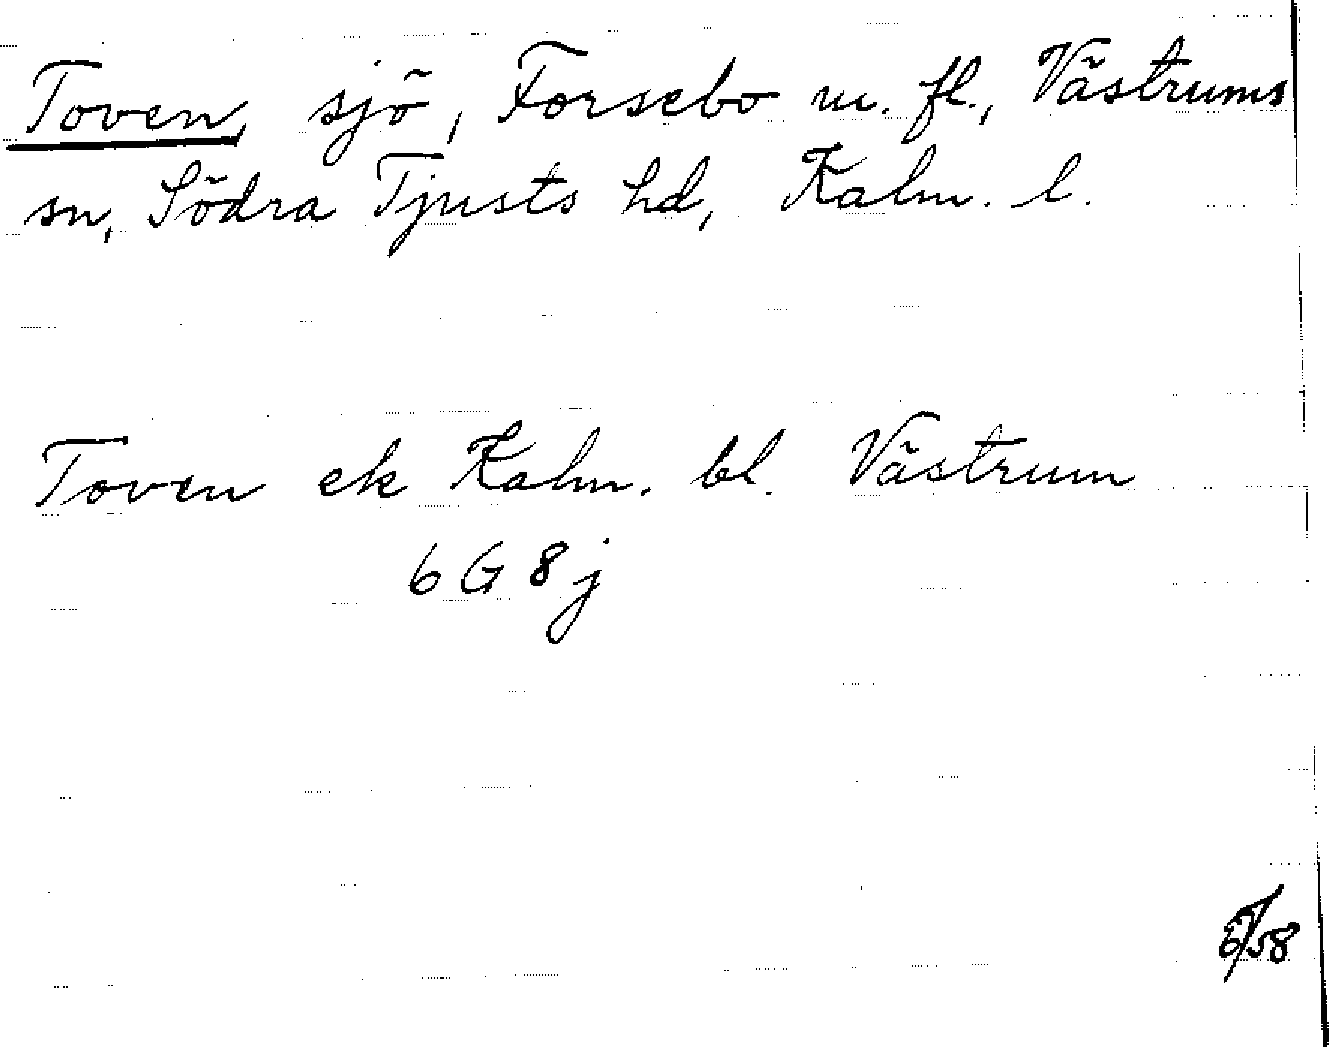 Toven, sjö, Forsebo m. fl., Västrums
sn, Södra Tjusts hd, Kalm. l.
Toven ek Kalm. bl. Västrum
6 G 8 j